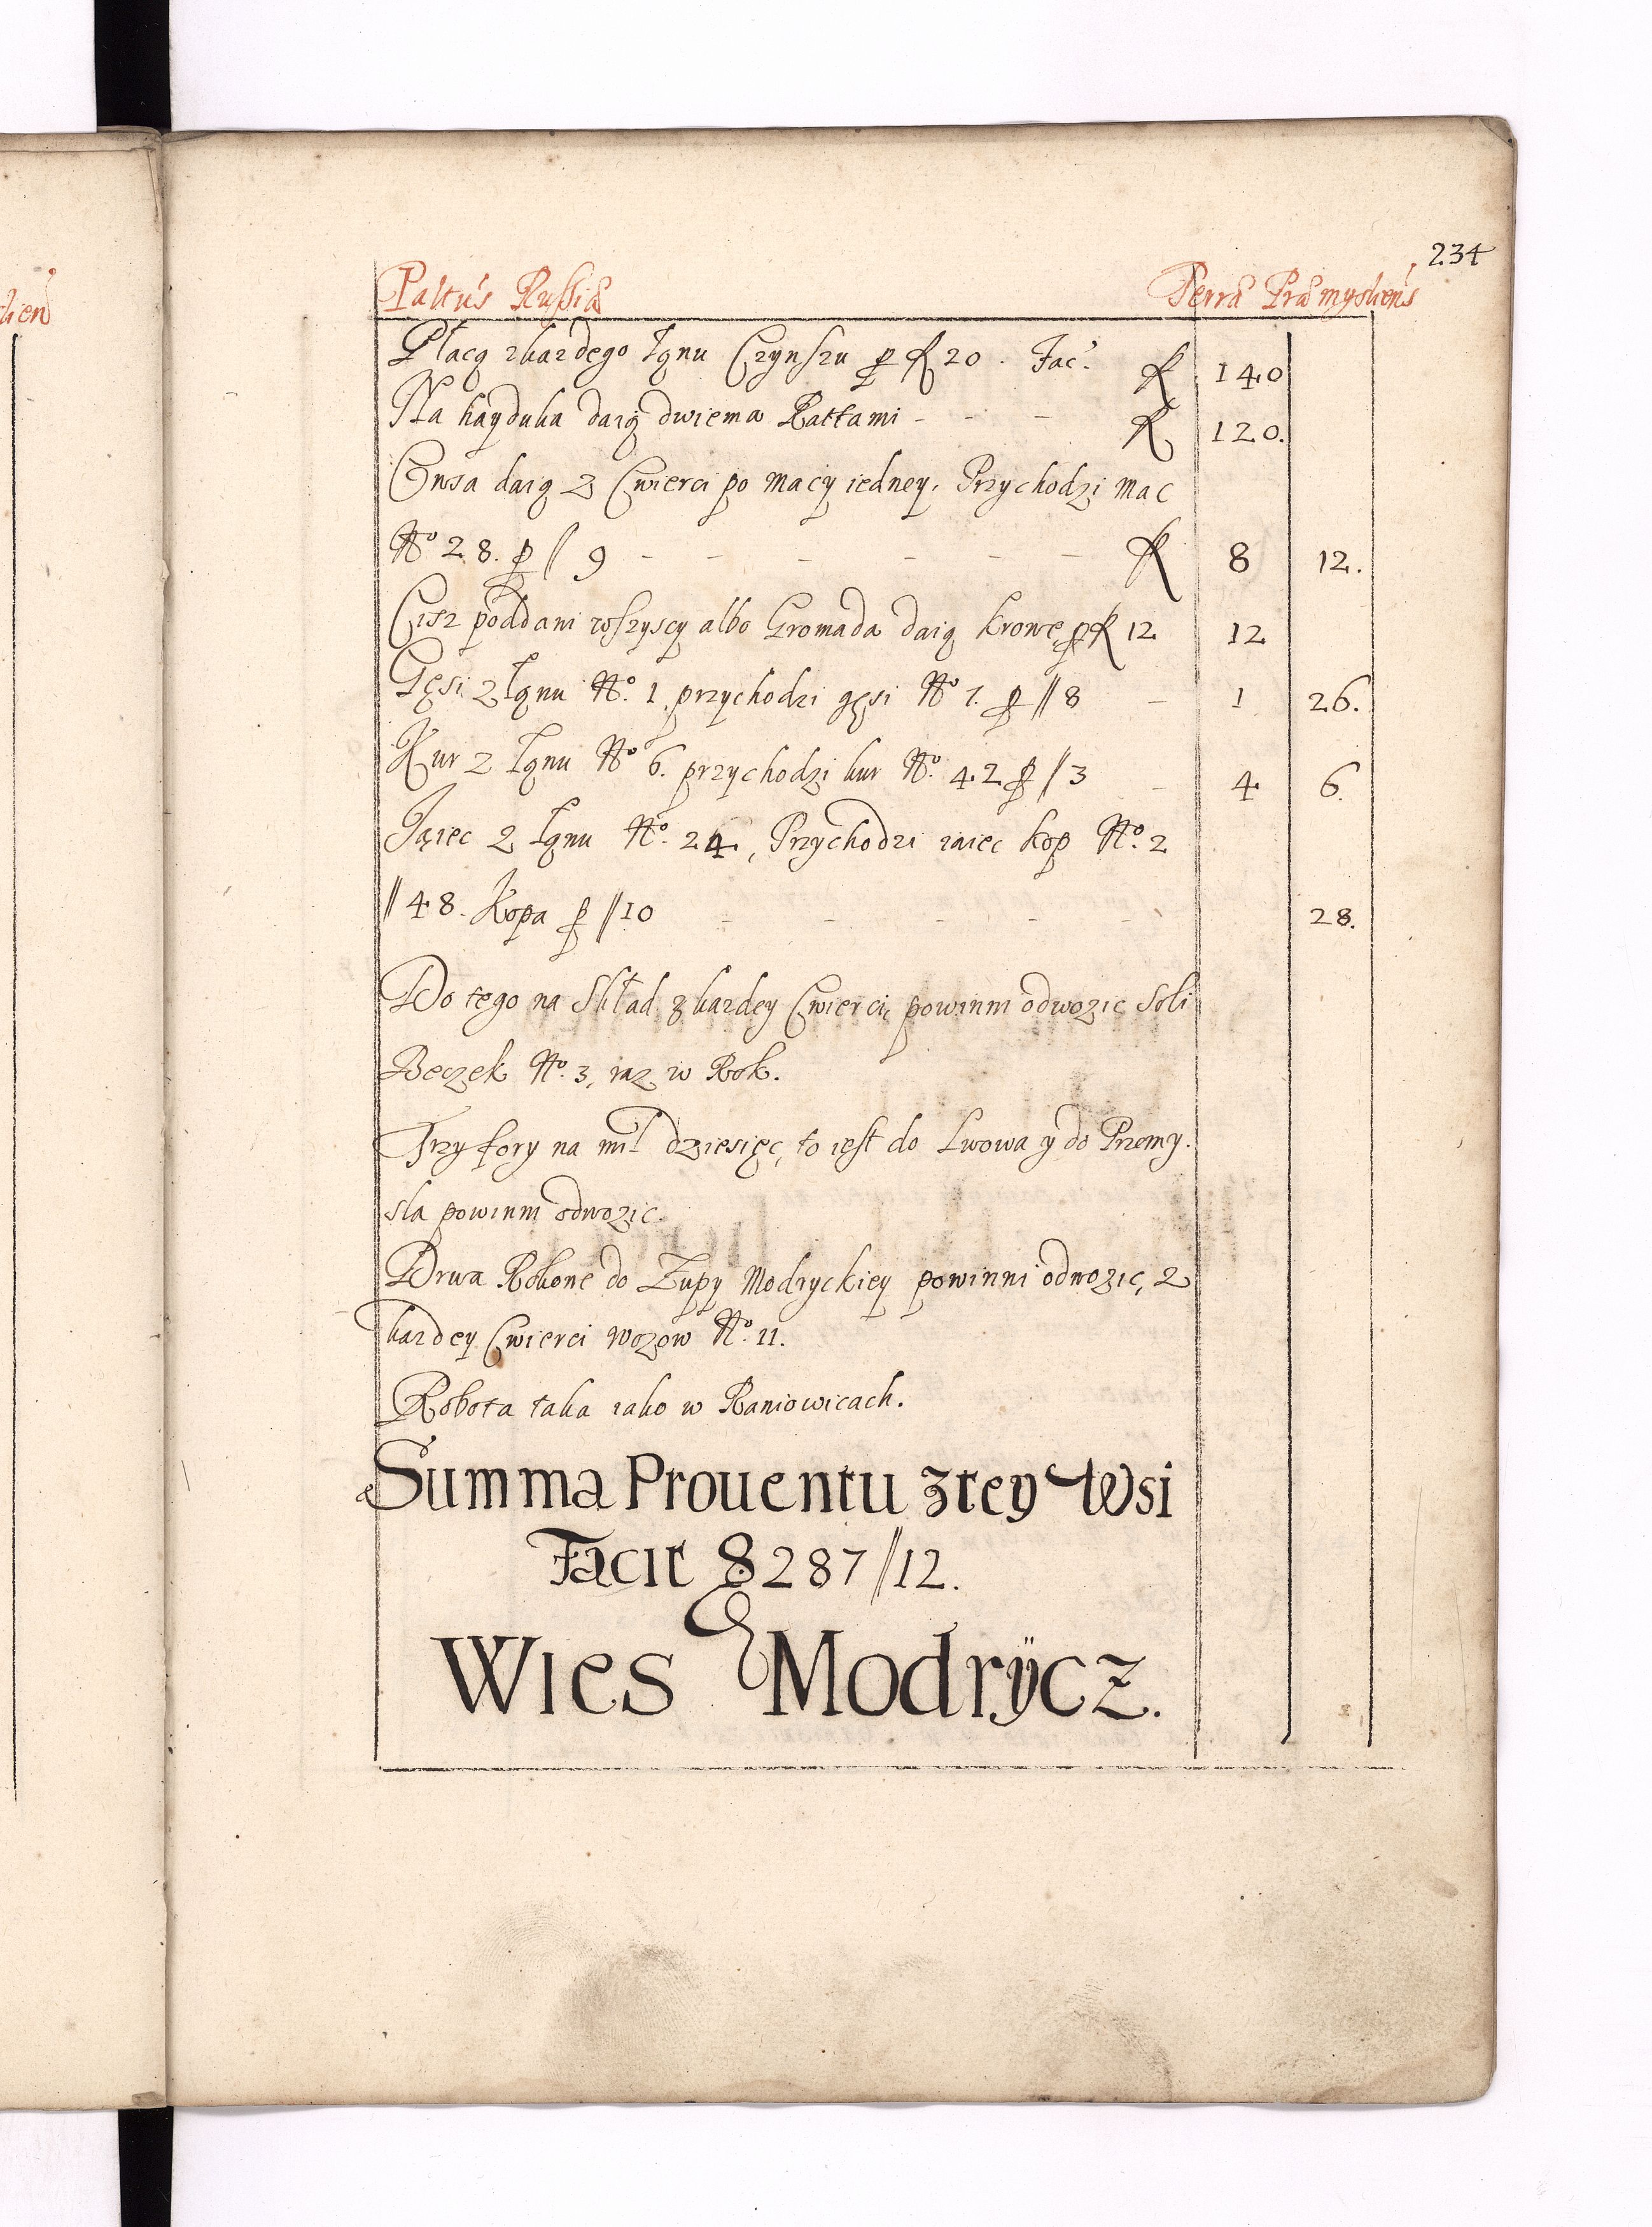 234
Paltus Russiæ Terræ Præmysliens
Płacą zkazdego Łąnu Czynszu per fl 20. Fac. fl 140
Na hayduka daią dwiema Rattami - - - fl 120.
Owsa daią z Cwierci po macy iedney. Przychodzi mac
No 28. per / 9 - - - - - - fl 8 12.
Cisz poddani wszyscy albo Gromada daią krowę per fl 12 12
Gęsi z Łąnu No. 1. przychodzi gęsi No 7. per // 8 - 1 26.
Kur z Łąnu No 6. przychodzi kur No. 42 per // 3 - 4 6.
Jaiec z Łąnu No. 24, Przychodzi iaiec kop No. 2
// 48. Kopa per // 10 - - - - - 28.
Do tego na Skład z kazdey Cwierci, powinni odwozic Soli
Beczek No. 3, raz w Rok.
Trzy fory na mil dziesięc, to iest do Lwowa y do Przemy.
sla powinni odwozic.
Drwa Rokone do Zupy Modryckiey powinni odwozic, z
kazdey Cwierci wozow No. 11.
Robota taka iako w Raniowicach.
Summa Prouentu z tey Wsi
Facit fl 287 // 12.
Wies Modrÿcz.